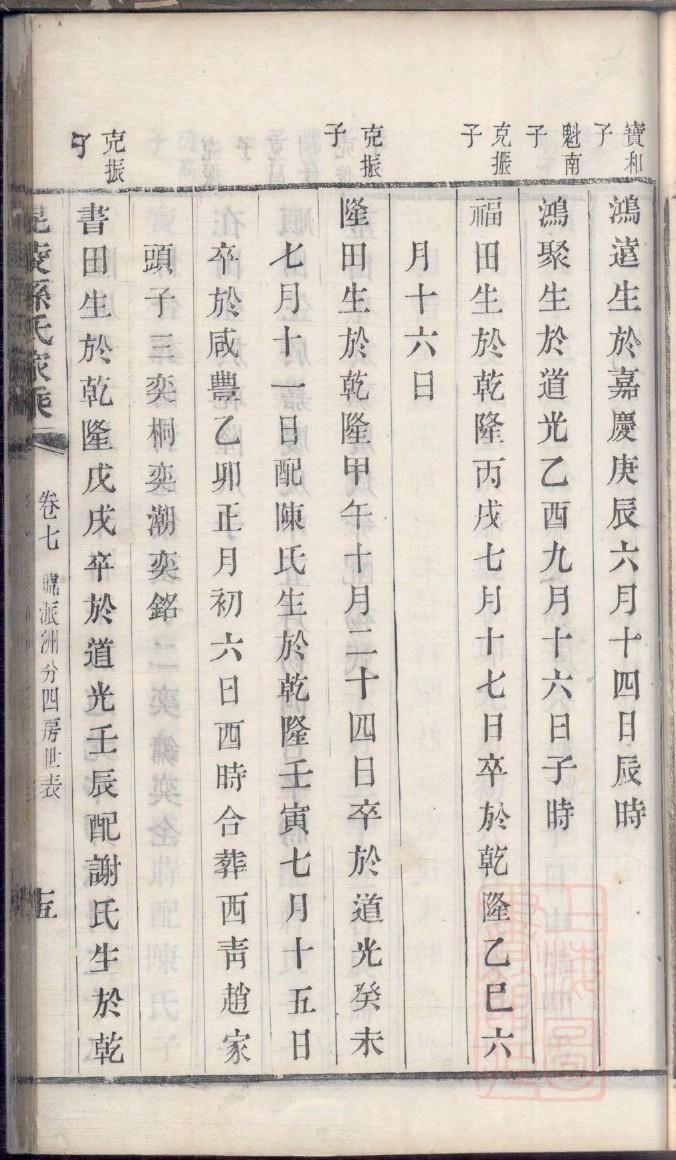 寶和子
鴻遠生於嘉慶庚辰六月十四日辰時
魁南子
鴻聚生於道光乙酉九月十六日子時
克振子
福田生於乾隆丙戌七月十七日卒於乾隆乙巳六
月十六日
克振子
隆田生於乾隆甲午十月二十四日卒於道光癸未
七月十一日配陳氏生於乾隆壬寅七月十五日
卒於咸豐乙卯正月初六日酉時合葬西青趙家
頭子三奕桐奕潮奕銘
克振子
書田生於乾隆戊戌卒於道光壬辰配謝氏生於乾
毘陵孫氏家乘
卷七
派洲分四房世表
十五